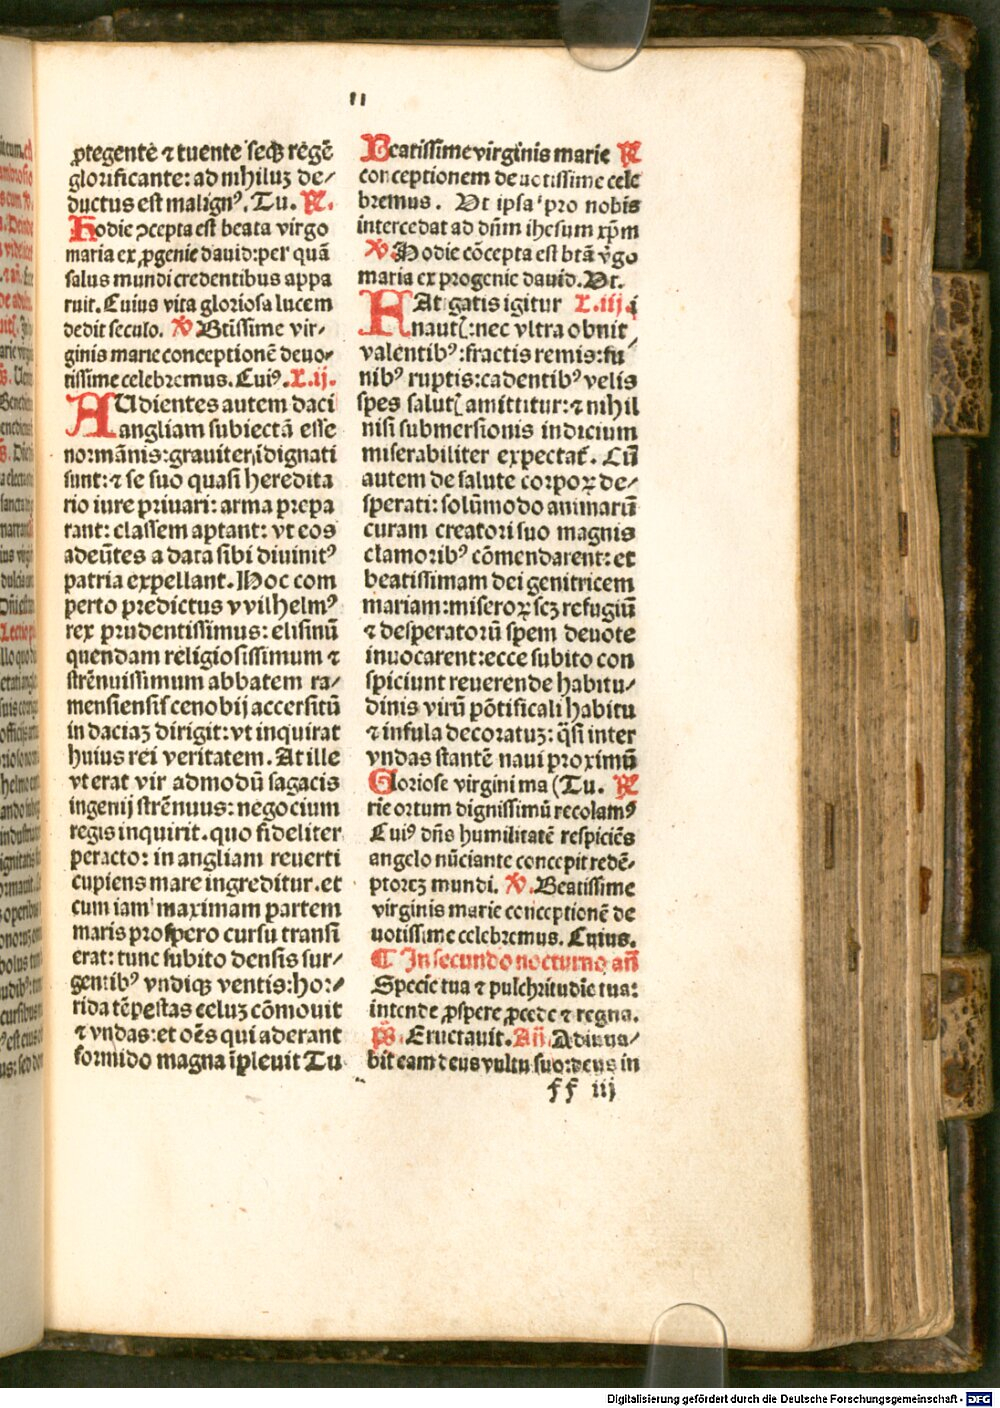 11
ꝓtegente ⁊ tuente seqꝫ regē
glorificante: ad nihiluꝫ de/
ductus est malignꝰ. Tu. ℟.
Hodie ↄcepta est beata virgo
maria ex ꝓgenie dauid: per quā
salus mundi credentibus appa
ruit. Cuius vita gloriosa lucem
dedit seculo. ℣ Btissime vir-
ginis marie conceptionē deuo-
tissime celebremus. Cuiꝰ. L.ij.
AUdientes autem daci
angliam subiectā esse
normānis: grauiter īdignati
sunt: ⁊ se suo quasi heredita
rio iure priuari: arma prepa
rant: classem aptant: vt eos
adeūtes a data sibi diuinitꝰ
patria expellant. Hoc com
perto predictus vvilhelmꝰ
rex prudentissimus: elisinū
quendam religiosissimum ⁊
strēnuissimum abbatem ra/
mensiensis cenobij accersitū
in daciaꝫ dirigit: vt inquirat
huius rei veritatem. At ille
vt erat vir admodū sagacis
ingenij strēnuus: negocium
regis inquirit. quo fideliter
peracto: in angliam reuerti
cupiens mare ingreditur. et
cum iam maximam partem
maris prospero cursu transi
erat: tunc subito densis sur/
gentibꝰ vndiqꝫ ventis: hor/
rida tēpestas celuꝫ cōmouit
⁊ vndas: et oēs qui aderant
formido magna īpleuit Tu
Beatissime virginis marie ℟
conceptionem deuotissime cele
bremus. Vt ipsa pro nobis
intercedat ad dn̄m ihesum xp̄m
℣ Hodie cōcepta est btā v̄go
maria ex progenie dauid. Vt.
FAtigatis igitur L.iij.
nautꝭ: nec vltra obnit
valentibꝰ: fractis remis: fu/
nibꝰ ruptis: cadentibꝰ velis
spes salutꝭ amittitur: ⁊ nihil
nisi submersionis indicium
miserabiliter expectat̄. Cū
autem de salute corpoꝝ de/
sperati: solūmodo animarū
curam creatori suo magnis
clamoribꝰ cōmendarent: et
beatissimam dei genitricem
mariam: miseroꝝ scꝫ refugiū
⁊ desperatorū spem deuote
inuocarent: ecce subito con
spiciunt reuerende habitu/
dinis virū pōtificali habitu
⁊ infula decoratuꝫ: q̄si inter
vndas stantē naui proximū
Gloriose virgini ma (Tu. ℟
rie ortum dignissimū recolamꝰ
Cuiꝰ dn̄s humilitatē respiciēs
angelo nūciante concepit redē-
ptoreꝫ mundi. ℣. Beatissime
virginis marie conceptionē de
uotissime celebremus. Cuius.
¶ In secundo nocturno an̄
Specie tua ⁊ pulchritudīe tua:
intende ꝓspere ꝓcede ⁊ regna.
ps̄. Eructauit. Añ. Adiuua/
bit eam deus vultu suo: deus in
ff iij
Digitalisierung gefördert durch die Deutsche Forschungsgemeinschaft - DFG